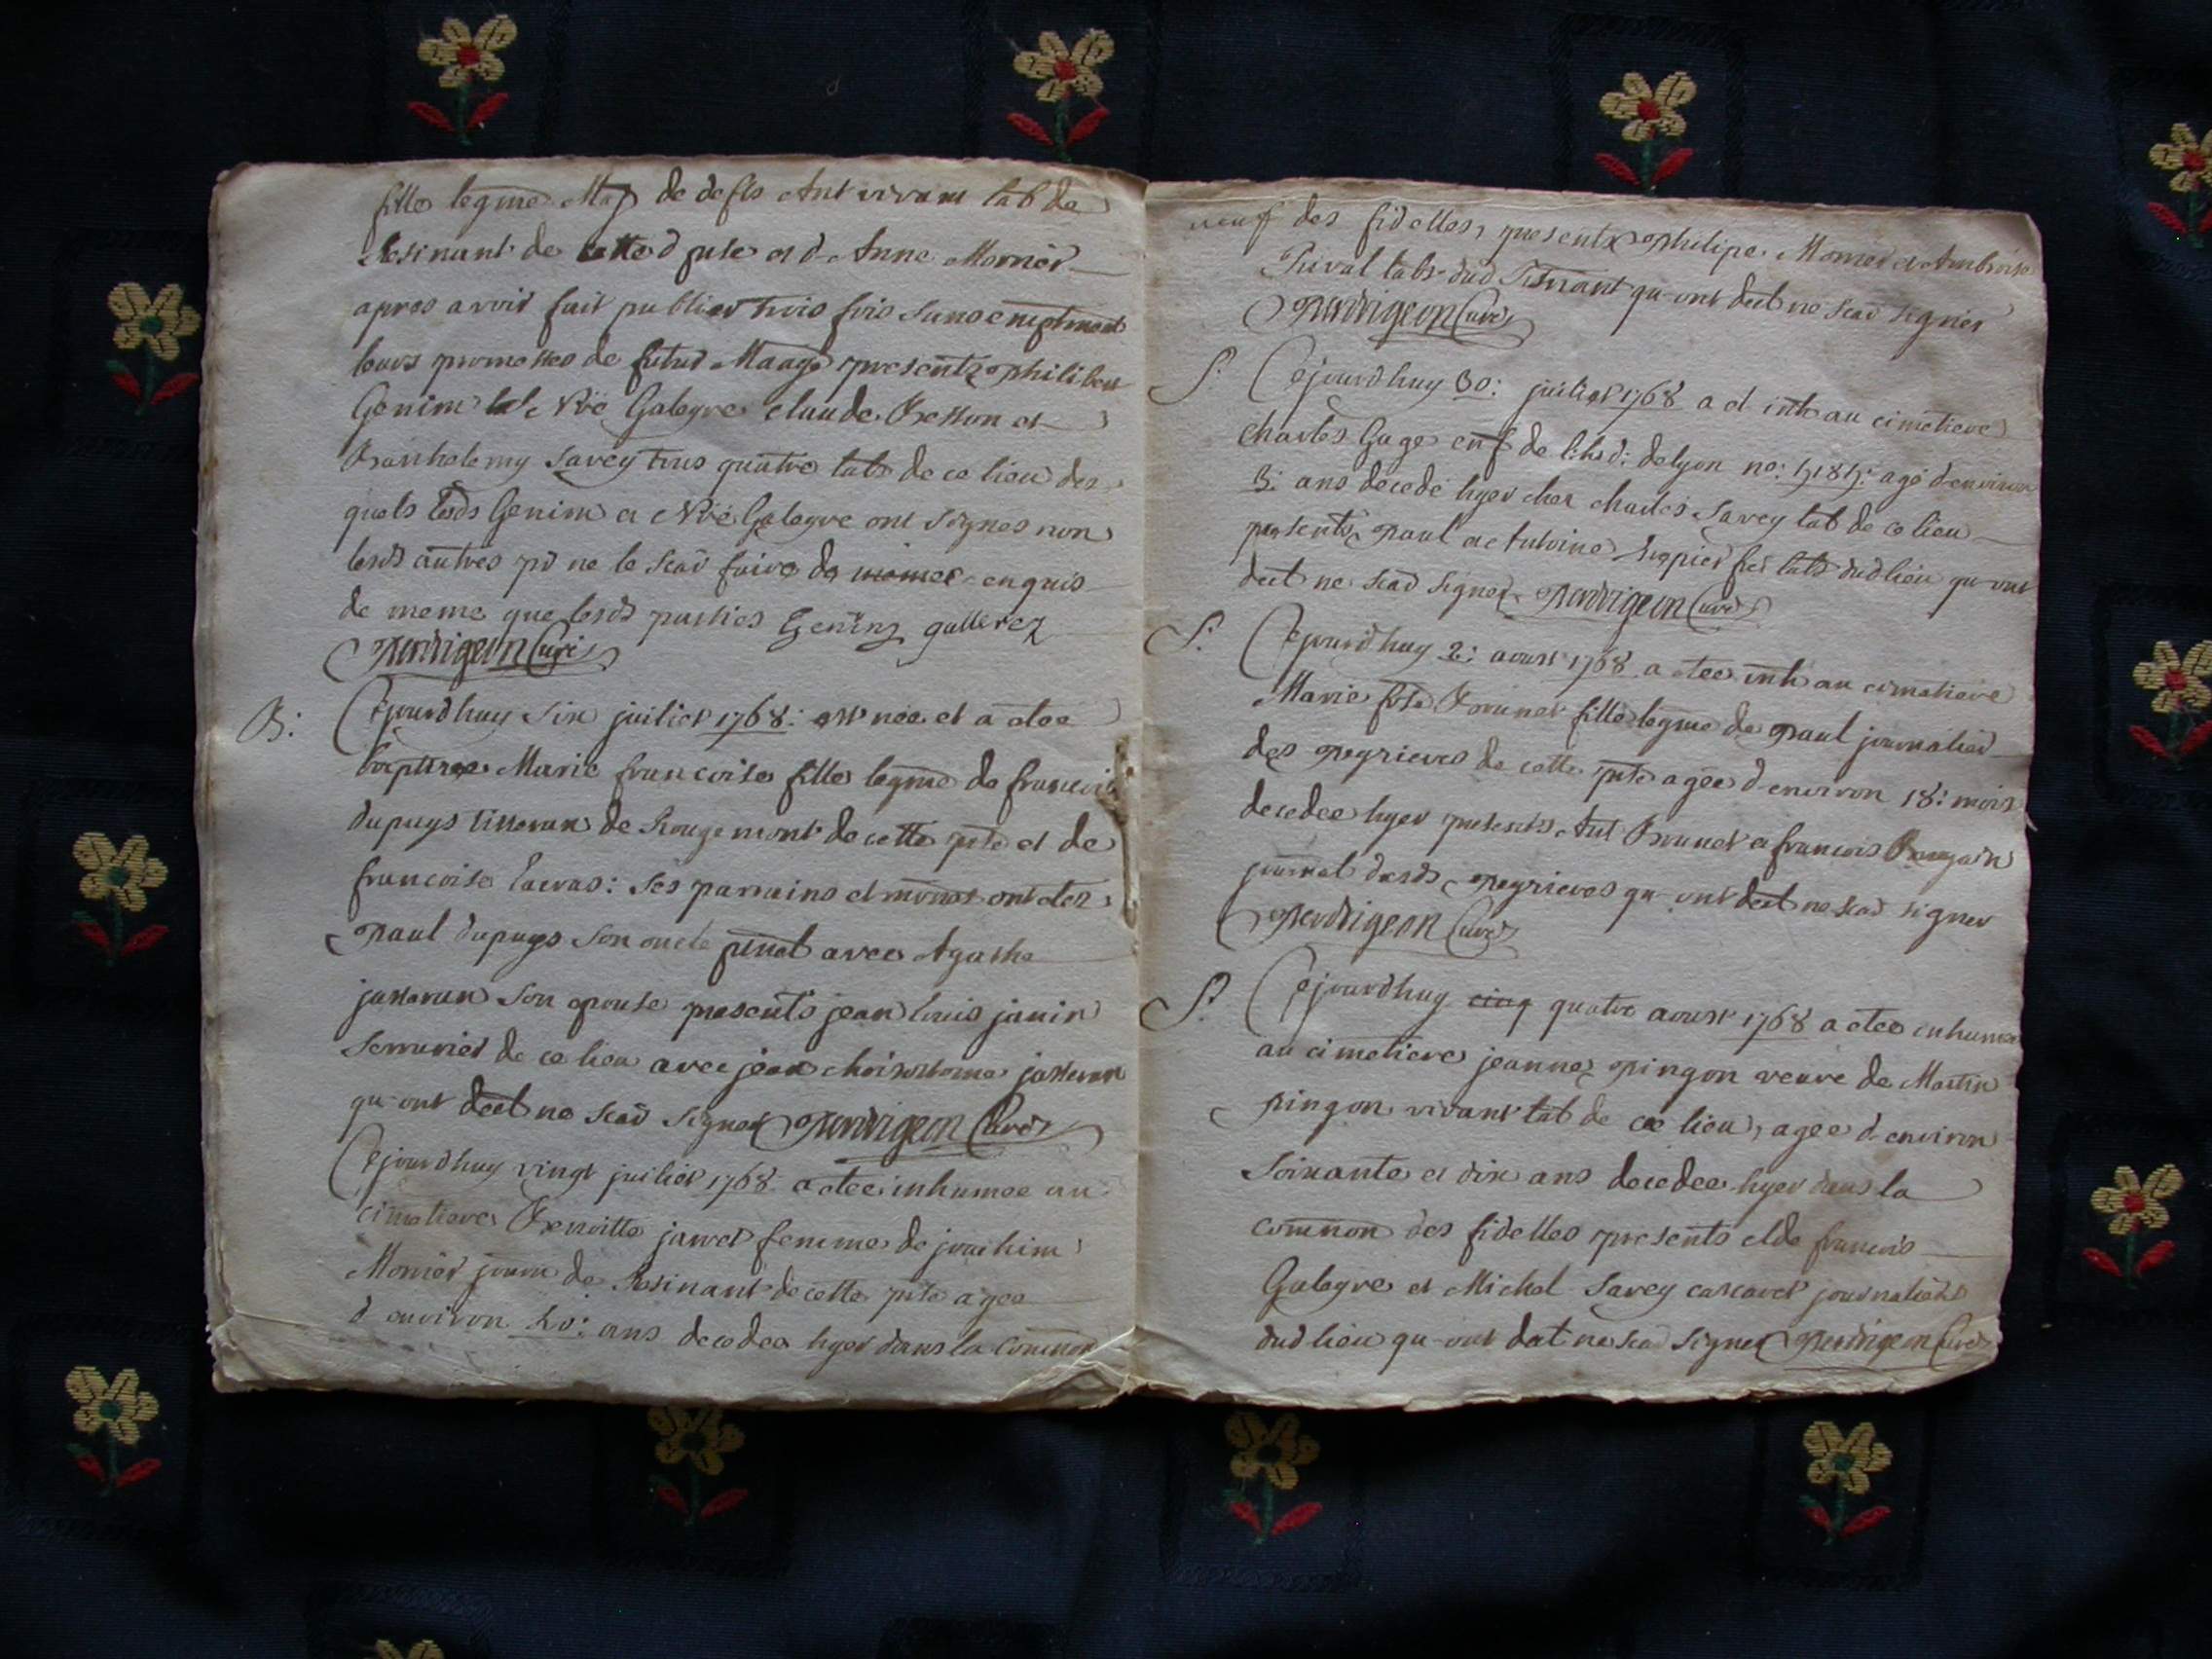 fille legme Maj de defts Ant vivant lab de
Resinant de cette d pse et d Anne Monier
apres avoir fait publier trois fois sans empttment
leurs promesses de futur Maage presents philibert
Genin Noë Galegre claude Besson et
Barthelemy Savey tous quatre labs de ce lieu des
quels lesds Genin et Noë Galegre ont signes non
lesds autres pr ne le scav faire de enquis
de meme que lesds parties Genin gallerez
perdrigeon Curé
B: Cejourdhuy Six juiliet 1768: est née et a etee
baptisee Marie francoise fille legme de francois
dupuys tisseran de Rougemont de cette pse et de
francoise Lacras: ses parrains et ont etez
paul dupuys son oncle avec Agathe
jasseran son epouse presents jean louis janin
serrurier de ce lieu avec jean choisostome jasseran
qu-ont dect ne scav signer perdrigeon Curé
Cejourdhuy vingt juiliet 1768 a etee inhumee au
cimetiere Benoitte janet femme de joachim
Monier journ de Resinant de cette pse agee
d environ ans decedee hyer dans la common
des fidelles, presents philipe Monier et Ambroise
labs dud Resinant qu-ont dect ne scav signer
perdrigeon Curé
S: Cejourdhuy 30: juiliet 1768 a et inh au cimetiere
charles Gage enf de lhd: de lyon no: agé d-environ
3: ans decedé hyer chez charles Savey lab de ce lieu
presents paul et Antoine fres labs dud lieu qu-ont
dect ne scav signer perdrigeon Curé
S: Cejourdhuy 2: aoust 1768 a etee inh au cimetiere
Marie fse Brunet fille legme de paul journalier
des peyrieres de cette pse agée d-environ 18: mois
decedee hyer presents Ant Brunet et francois
journal desds peyrieres qu-ont dect ne scav signer
perdrigeon Curé
S: Cejourdhuy cinq quatre aoust 1768 a etee inhumee
au cimetiere jeanne pingon veuve de Martin
pingon vivant lab de ce lieu, agee d-environ
soixante et dix ans decedee hyer dans la
common des fidelles presents francois
Galegre et Michel Savey journaliers
dud lieu qu-ont dect ne scav signer perdrigeon Curé